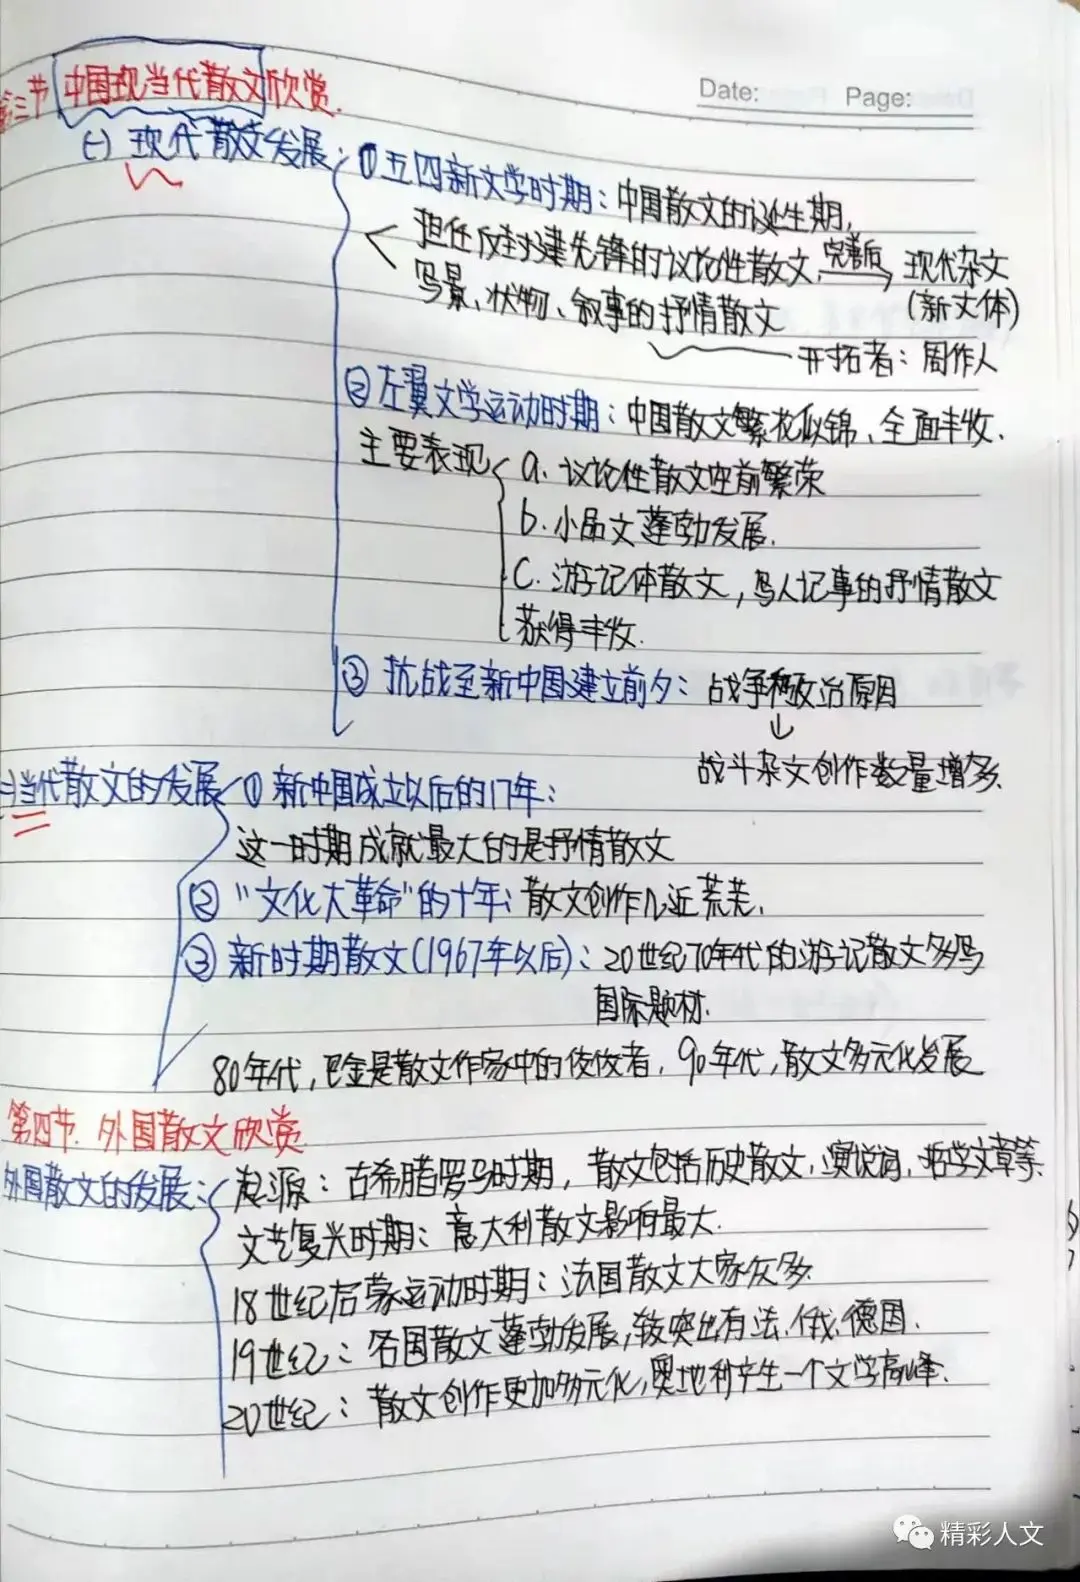 Date: Page:
第三节 中国现当代散文欣赏.
(一) 现代散文发展: ①五四新文学时期: 中国散文的诞生期,
担任反封建先锋的议论性散文, 完善后 现代杂文
写景、状物、叙事的抒情散文 (新文体)
开拓者: 周作人
②左翼文学运动时期: 中国散文繁花似锦、全面丰收.
主要表现 a. 议论性散文空前繁荣
b. 小品文蓬勃发展.
C. 游记体散文, 写人记事的抒情散文
获得丰收.
③ 抗战至新中国建立前夕: 战争和政治原因
战斗杂文创作数量增多.
(二)当代散文的发展 ① 新中国成立以后的17年:
这一时期成就最大的是抒情散文
② "文化大革命"的十年: 散文创作几近荒芜.
③ 新时期散文(1967年以后): 20世纪70年代的游记散文多写
国际题材.
80年代, 巴金是散文作家中的佼佼者, 90年代, 散文多元化发展
第四节. 外国散文欣赏
外国散文的发展: 起源: 古希腊罗马时期, 散文包括历史散文, 演说词, 哲学文章等.
文艺复兴时期: 意大利散文影响最大.
18世纪启蒙运动时期: 法国散文大家众多.
19世纪: 各国散文蓬勃发展, 较突出有法、俄、德国.
20世纪: 散文创作更加多元化, 奥地利产生一个文学高峰.
精彩人文